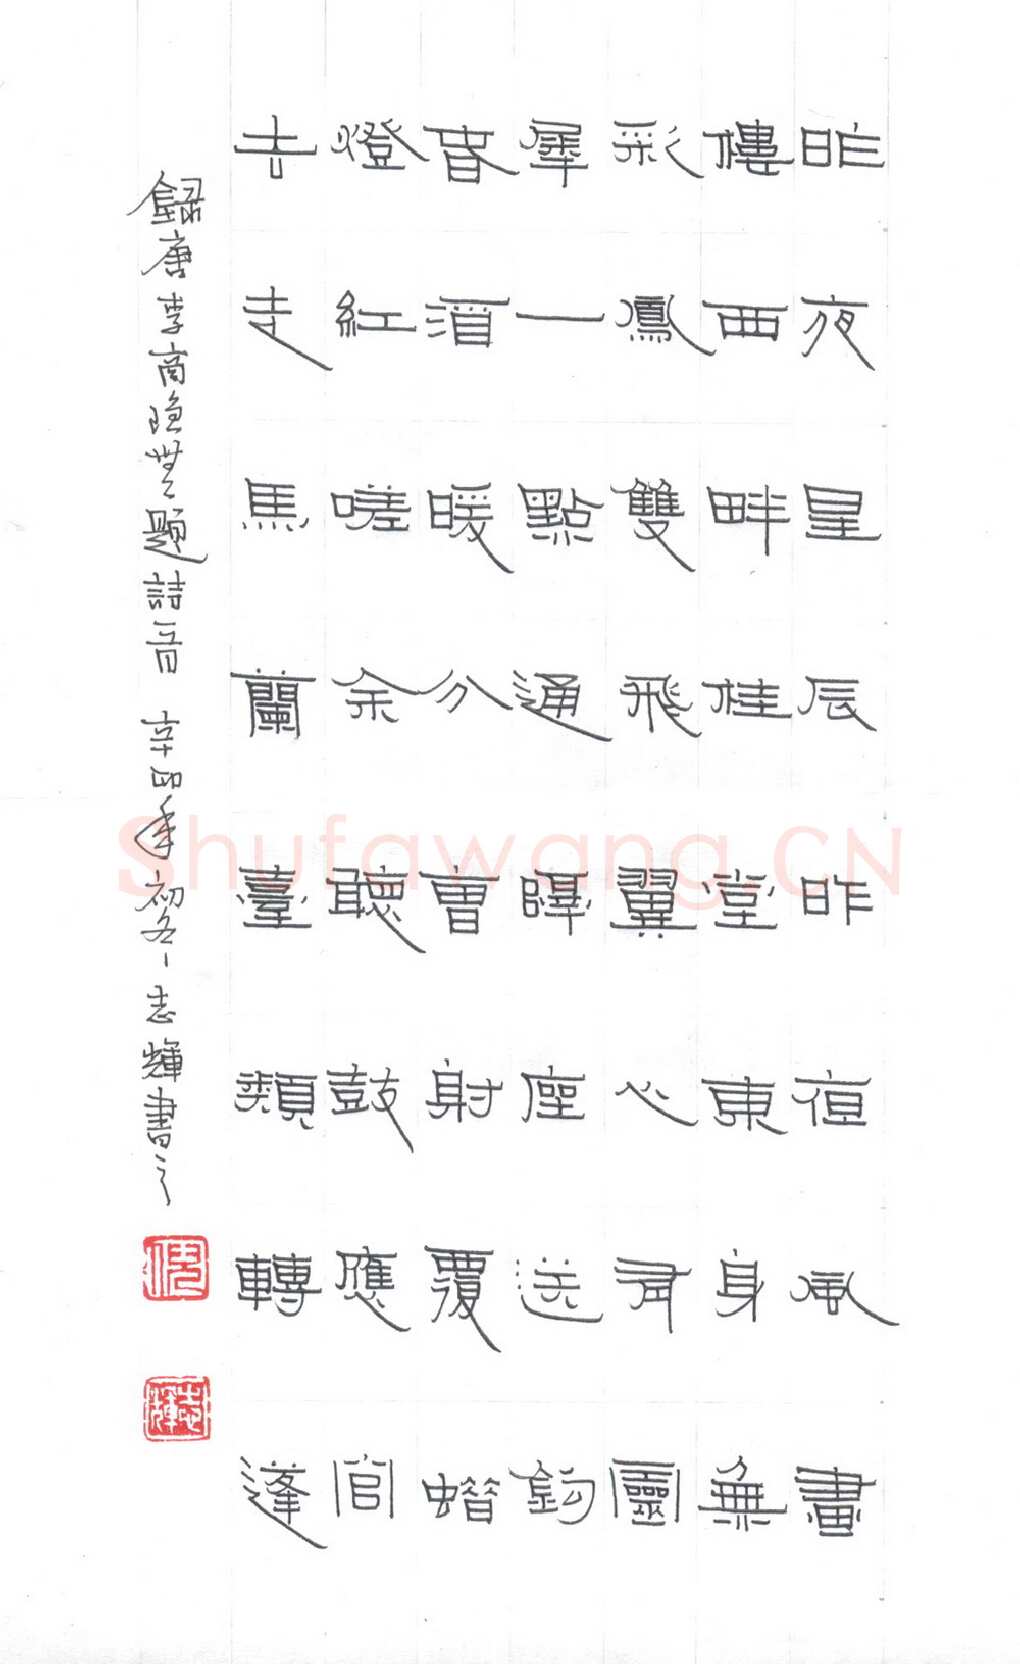 昨夜星辰昨夜風畫
樓西畔桂堂東身無
彩鳳雙飛翼心有靈
犀一點通隔座送鉤
春酒暖分曹射覆蠟
燈紅嗟余聽鼓應官
去走馬蘭臺類轉蓬
錄唐李商隱無題詩一首 辛卯年初冬志輝書之
志輝
Shufawang.CN